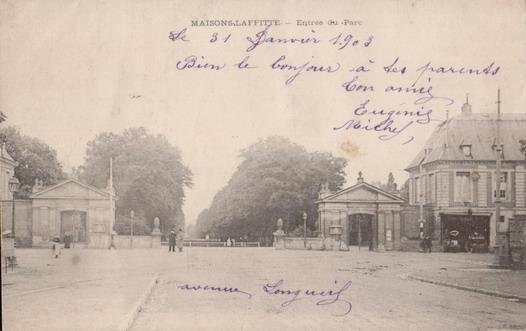 MAISONS-LAFFITTE — Entrée du Parc
Le 31 Janvier 1903
Bien le bonjour à tes parents
Ton amie
Eugénie
Michel
avenue Longueil